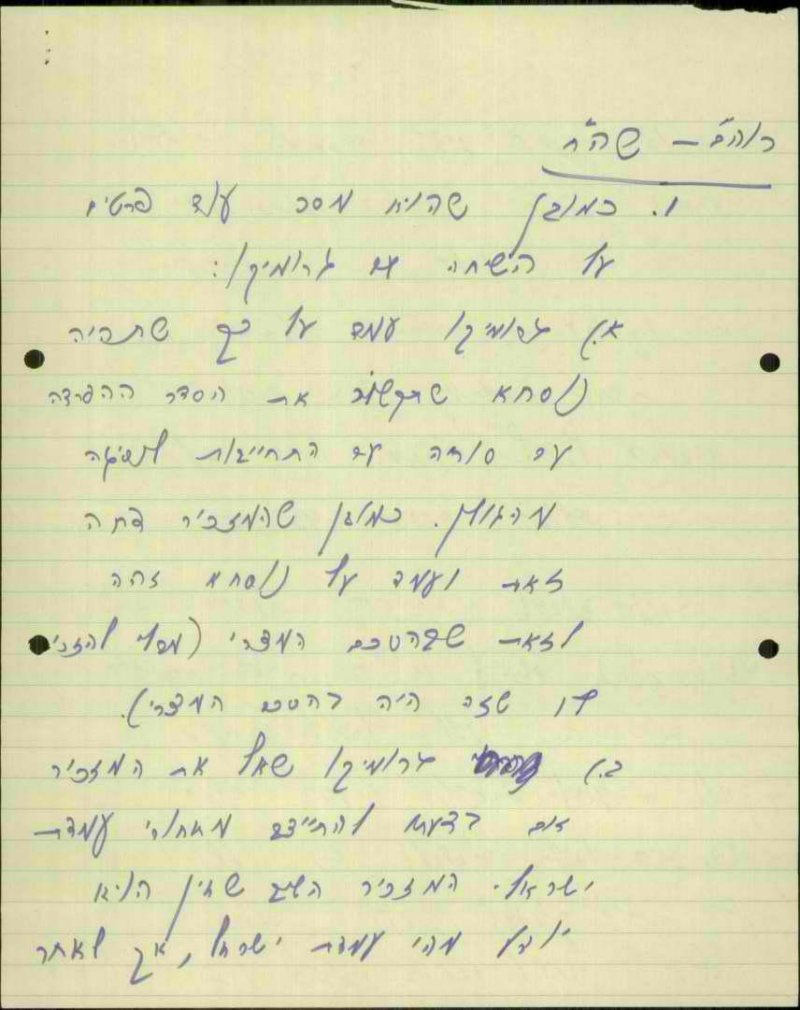 רוה"מ – שה"ח
1. כמובן שהוא מסר עוד פרטים
על השיחה עם גרומיקו:
א.) גרומיקו עמד על כך שתהיה
נוסחא שתקשור את הסדר ההפרדה
עם סוריה עם התחייבות לנסיגה
מהגולן. כמובן שהמזכיר דחה
זאת ועמד על נוסחא זהה
לזאת שבהסכם המצרי (מבלי להזכיר
לו שזה היה בהסכם המצרי).
ב.) גרומיקו שאל את המזכיר
האם בדעתו להתייצב מאחורי עמדת
ישראל. המזכיר השיב שאין הוא
יודע מהי עמדת ישראל, אך לאחר